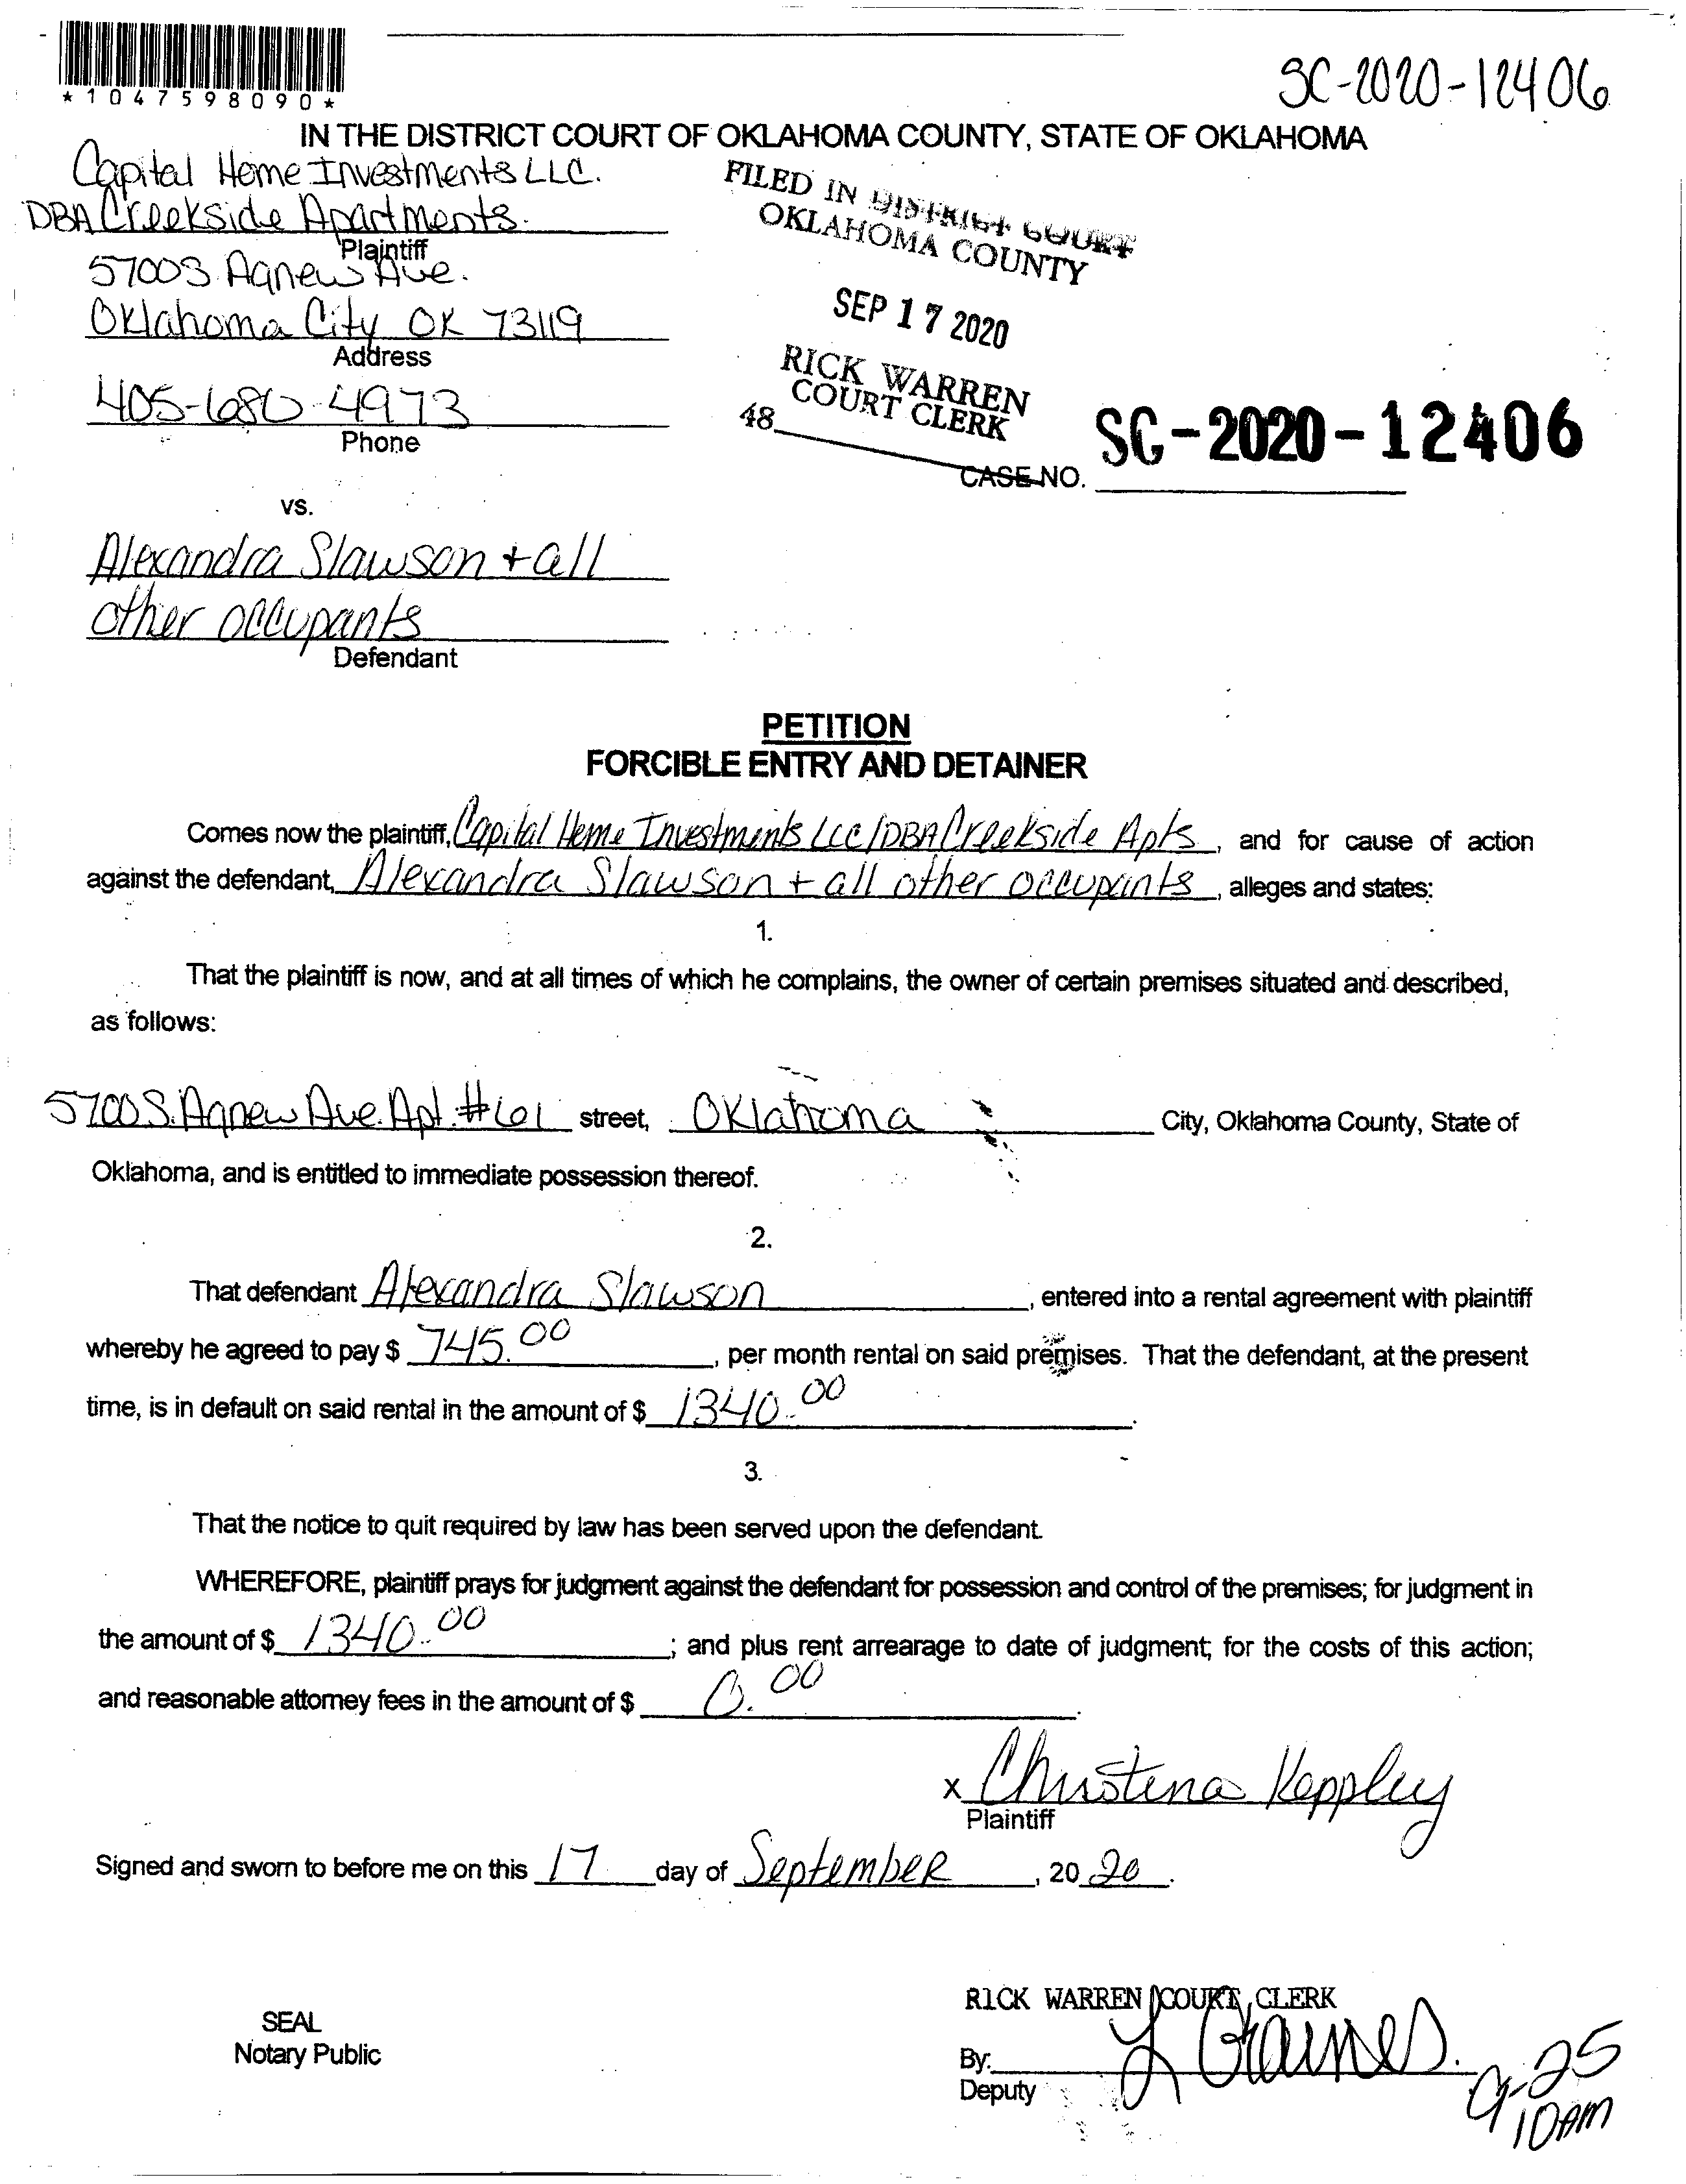 *1047598090*
SC-2020-12406
IN THE DISTRICT COURT OF OKLAHOMA COUNTY, STATE OF OKLAHOMA
Capital Home Investments LLC.
DBA Creekside Apartments.
Plaintiff
5700 S. Agnew Ave.
Oklahoma City OK 73119
Address
405-680-4973
Phone
FILED IN DISTRICT COURT
OKLAHOMA COUNTY
SEP 17 2020
RICK WARREN
COURT CLERK
48
CASE NO. SC-2020-12406
vs.
Alexandra Slawson + all
other occupants
Defendant
PETITION
FORCIBLE ENTRY AND DETAINER
Comes now the plaintiff, Capital Home Investments LLC/DBA Creekside Apts, and for cause of action
against the defendant, Alexandra Slawson + all other occupants, alleges and states:
1.
That the plaintiff is now, and at all times of which he complains, the owner of certain premises situated and described,
as follows:
5700 S. Agnew Ave. Apt. #161 street, Oklahoma City, Oklahoma County, State of
Oklahoma, and is entitled to immediate possession thereof.
2.
That defendant Alexandra Slawson, entered into a rental agreement with plaintiff
whereby he agreed to pay $ 745.00, per month rental on said premises. That the defendant, at the present
time, is in default on said rental in the amount of $ 1340.00.
3.
That the notice to quit required by law has been served upon the defendant.
WHEREFORE, plaintiff prays for judgment against the defendant for possession and control of the premises; for judgment in
the amount of $ 1340.00; and plus rent arrearage to date of judgment; for the costs of this action;
and reasonable attorney fees in the amount of $ 0.00.
x Christina Keppley
Plaintiff
Signed and sworn to before me on this 17 day of September, 2020.
SEAL
Notary Public
RICK WARREN COURT CLERK
By: L Gaines
Deputy
9-25
10AM